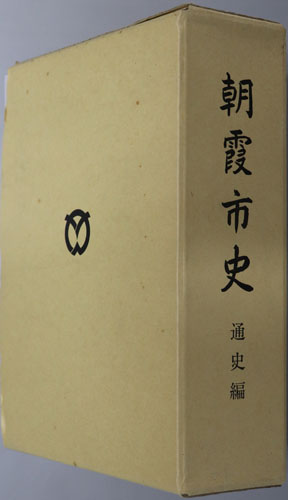 朝霞市史
通史編